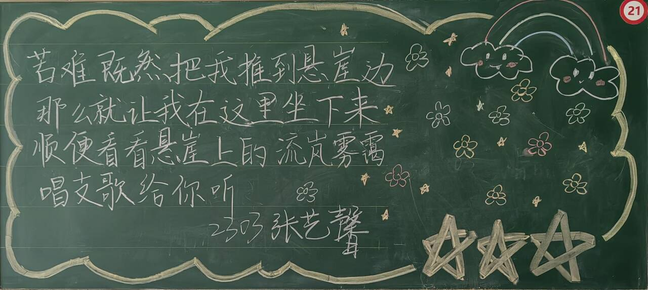 21
苦难既然把我推到悬崖边
那么就让我在这里坐下来
顺便看看悬崖上的流岚雾霭
唱支歌给你听
2303 张艺聲